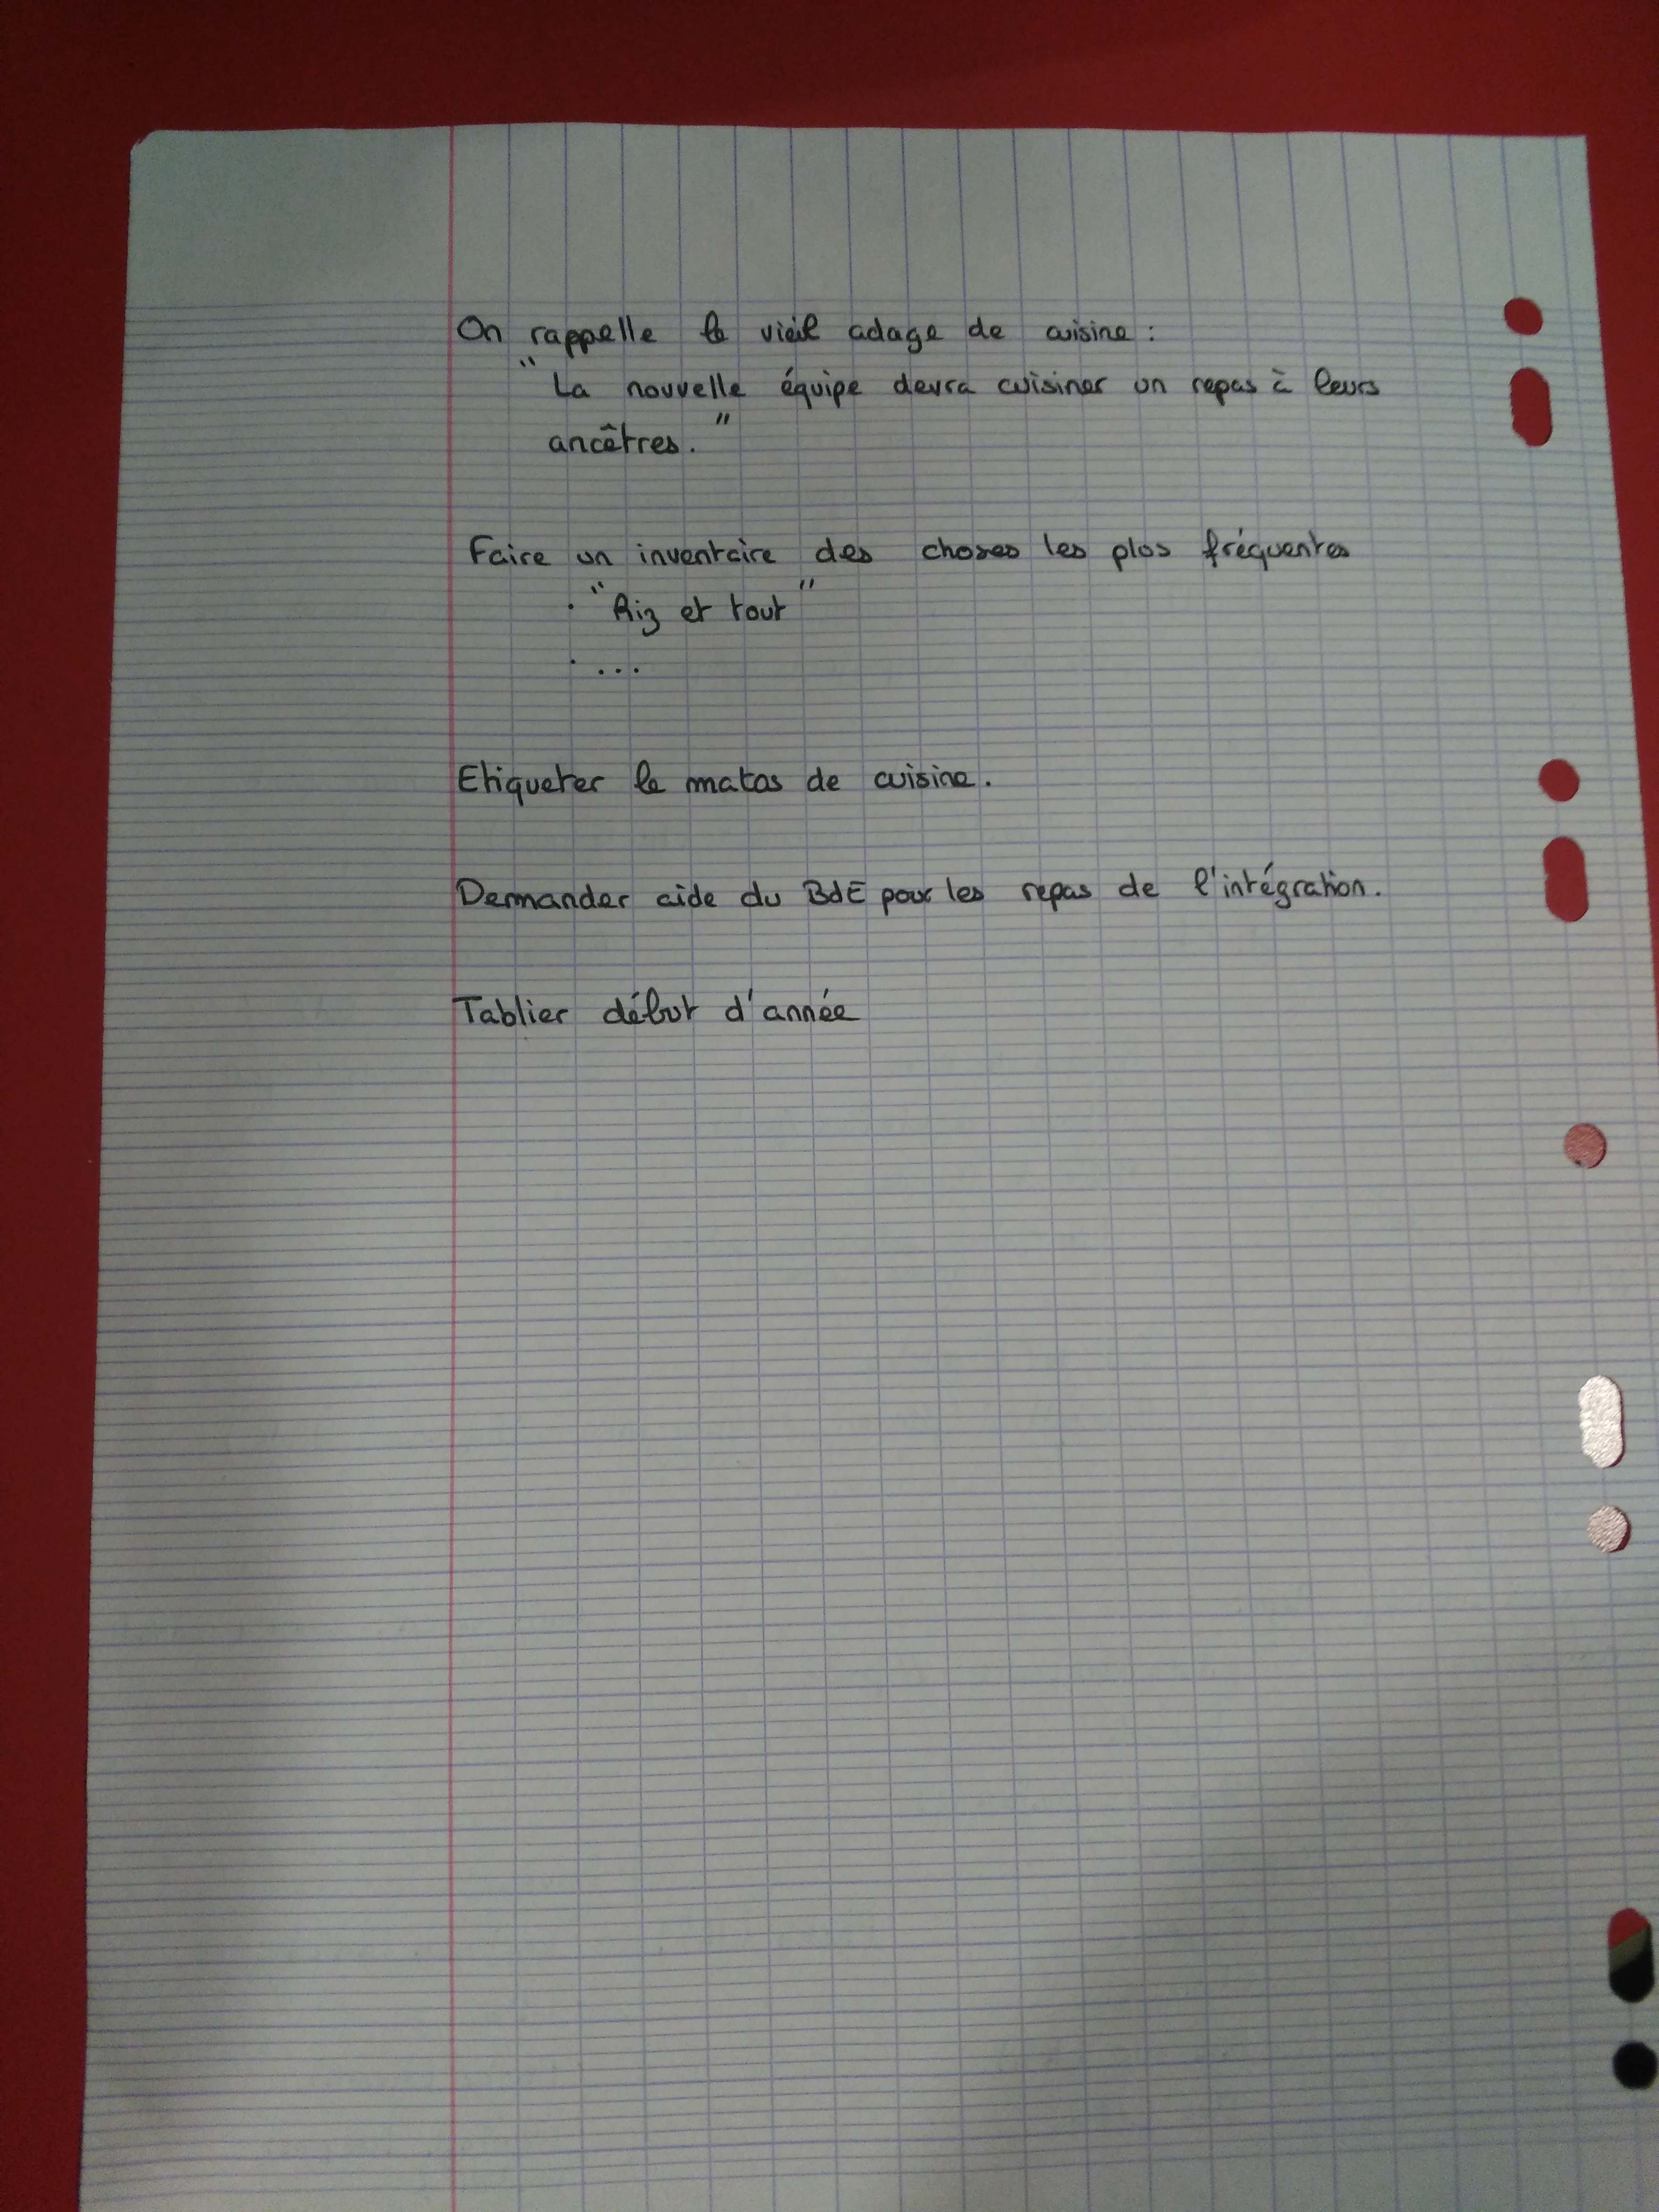 On rappelle le vieil adage de cuisine :
"La nouvelle équipe devra cuisiner un repas à leurs
ancêtres."
Faire un inventaire des choses les plus fréquentes
· "Riz et tout"
· ...
Etiqueter le matos de cuisine.
Demander aide du BdE pour les repas de l'intégration.
Tablier début d'année